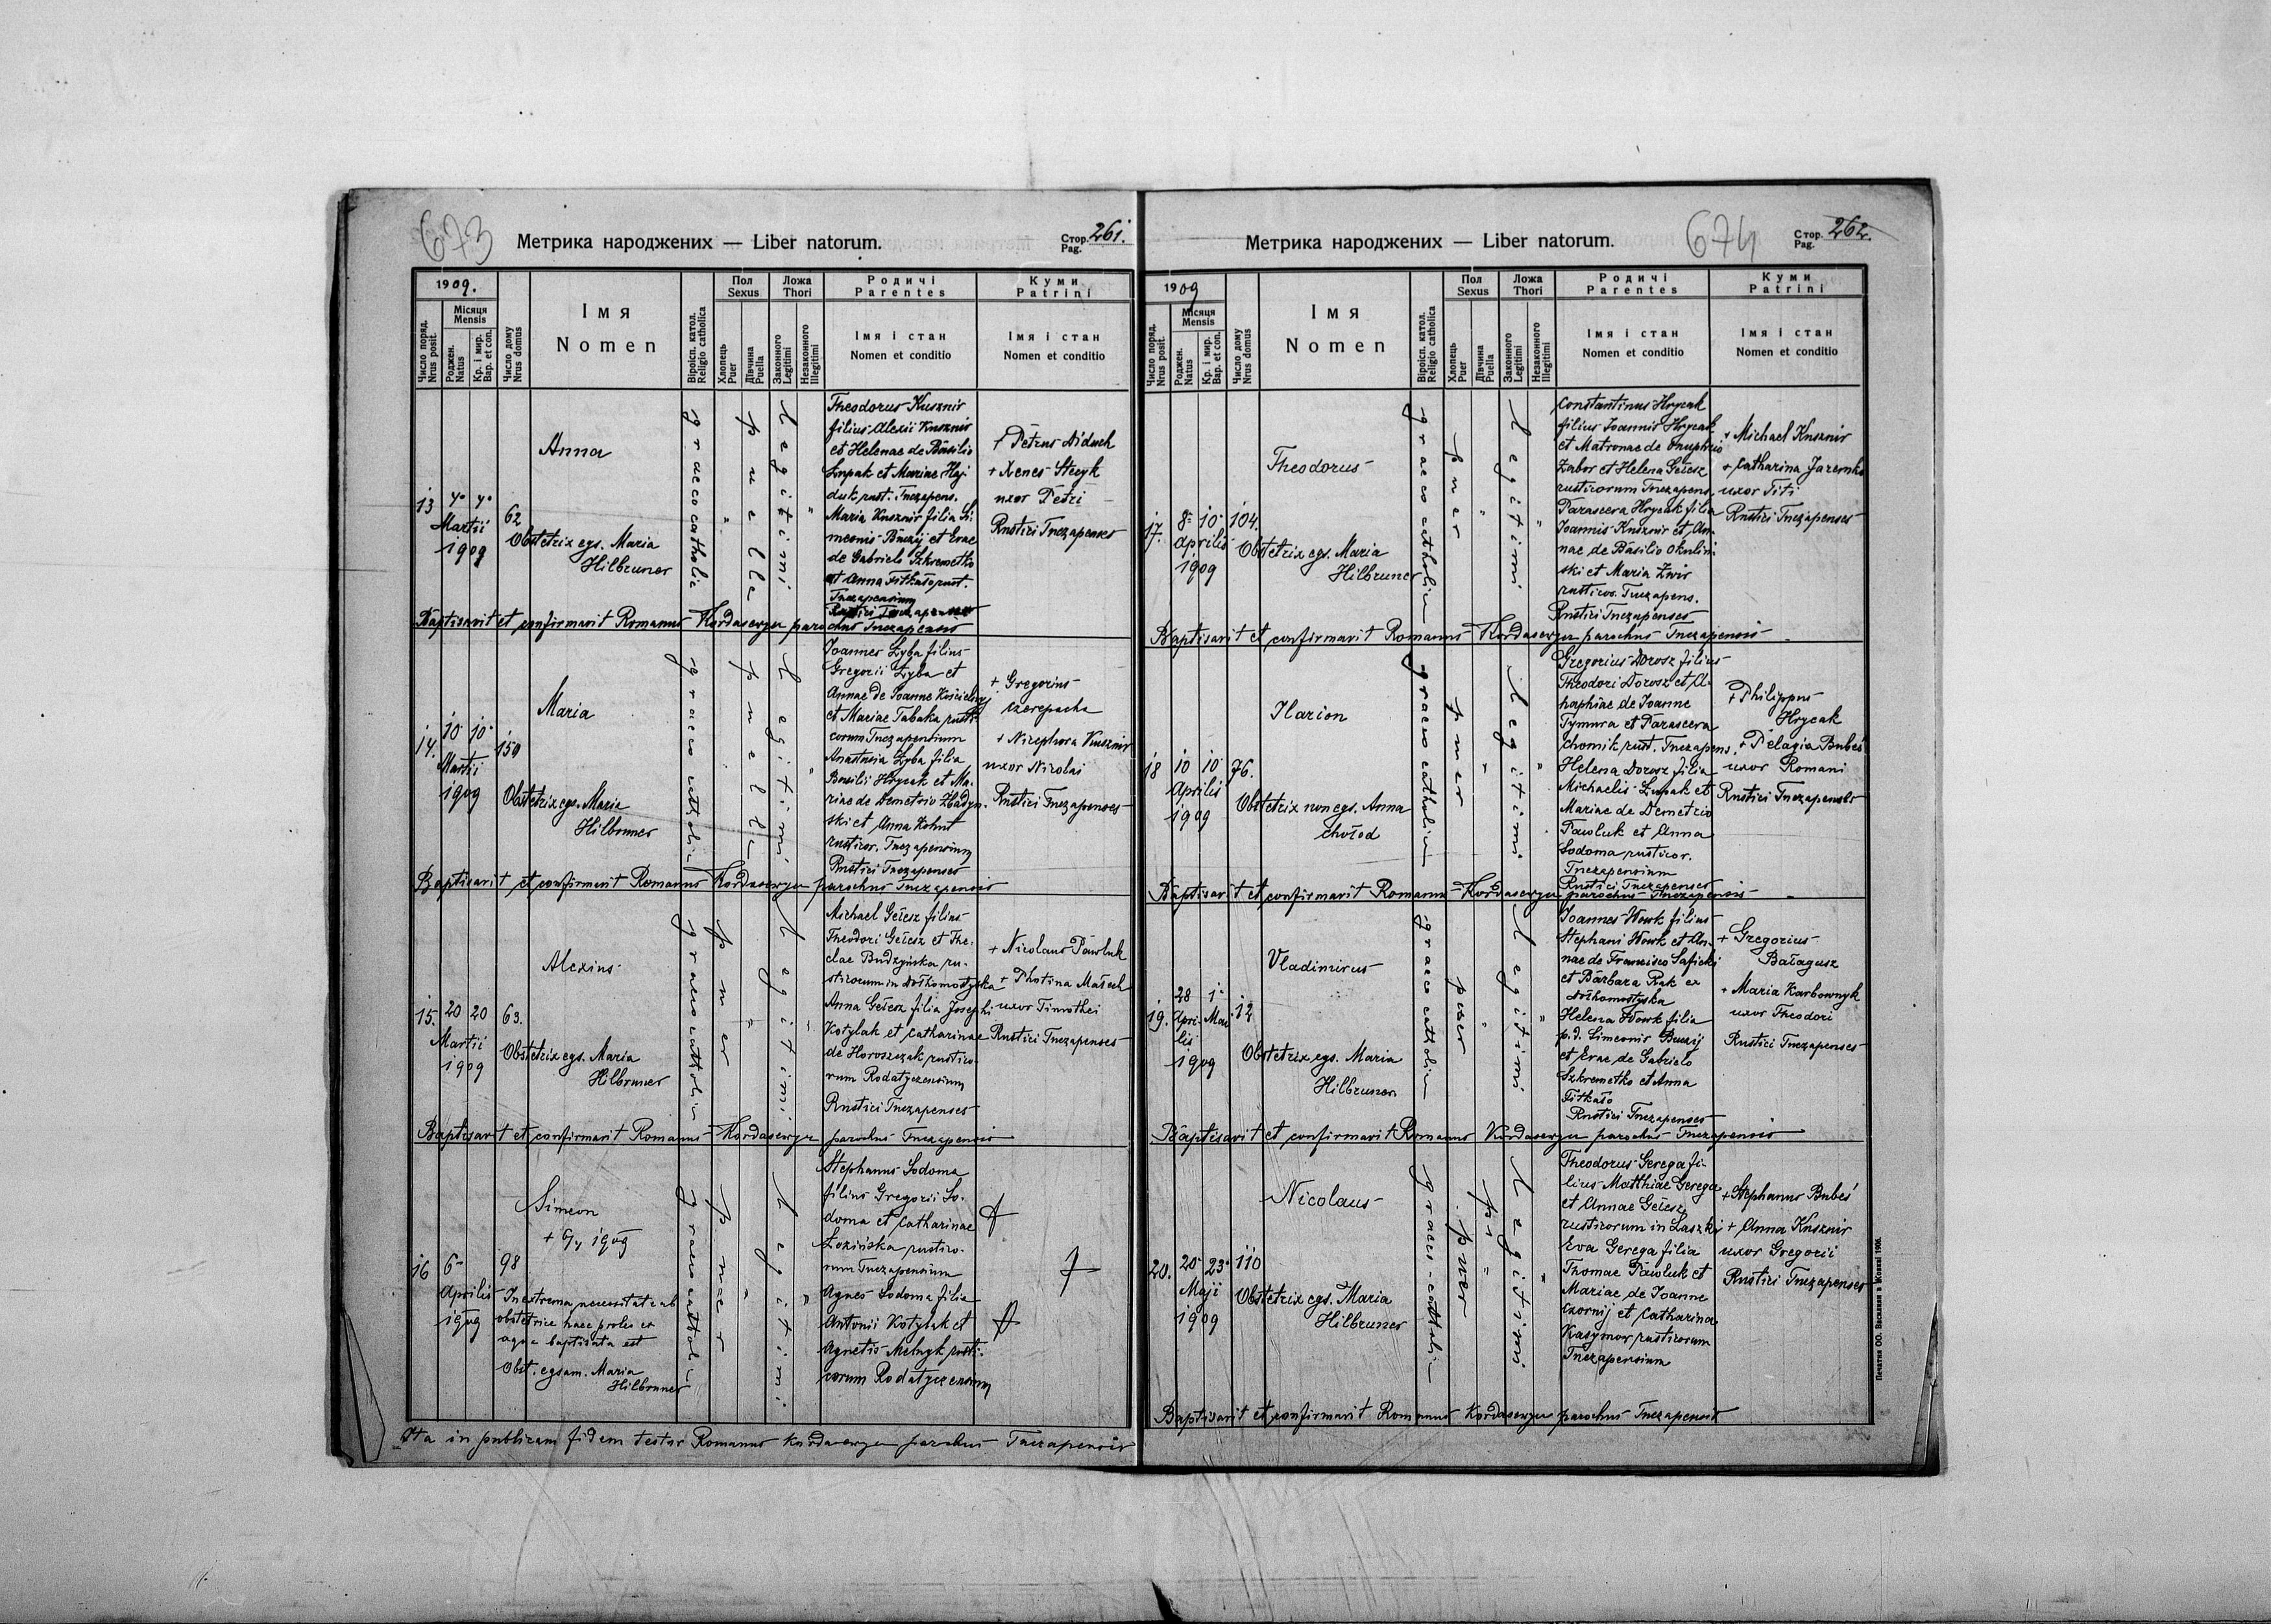 673
Метрика народжених — Liber natorum.
Стор. 261.
Pag.
1909.
Місяця
Mensis
Число поряд.
Nrus posit.
Роджен.
Natus
Кр. і мир.
Bap. et con.
Число дому
Nrus domus
Імя
Nomen
Віроісп. катол.
Religio catholica
Пол
Sexus
Хлопець
Puer
Дівчина
Puella
Ложа
Thori
Законного
Legitimi
Незаконного
Illegitimi
Родичі
Parentes
Імя і стан
Nomen et conditio
Куми
Patrini
Імя і стан
Nomen et conditio
13
7° 7°
Martii
1909
62
Anna
Obstetrix egs. Maria
Hilbruner
graeco catholic
puella
legitimi
Theodorus Kusznir
filius Alexii Kusznir
et Helenae de Basilio
Łupak et Mariae Haj-
duk rust. Tuczapens.
Maria Kusznir filia Si-
meonis Buczij et Evae
de Gabriele Szkremetko
et Anna Fitkało rust.
Tuczapensium
+ Petrus Diduch
+ Xenes Stecyk
uxor Petri
Rustici Tuczapenses
Baptisavit et confirmavit Romanus Kordasewycz parochus Tuczapensis
14.
10 10
Martii
1909
150
Maria
Obstetrix egs. Maria
Hilbruner
graeco catholic
puella
Legitimi
Joannes Zyba filius
Gregorii Zyba et
Annae de Joanne Kościelnyj
et Mariae Tabaka rusti-
corum Tuczapensium
Anastasia Zyba filia
Basilii Hrycak et Ma-
riae de Demetrio Zbadyn-
ski et Anna Kohut
rusticor. Tuczapensium
Rustici Tuczapenses
+ Gregorius
Czerepacha
+ Nicephora Kusznir
uxor Nicolai
Rustici Tuczapenses
Baptisavit et confirmavit Romanus Kordasewycz parochus Tuczapensis
15.
20 20
Martii
1909
63.
Alexius
Obstetrix egs. Maria
Hilbruner
graeco catholic
puer
Legitimi
Michael Gełesz filius
Theodori Gełesz et The-
clae Budzyńska ru-
sticorum in Dołhomostyska
Anna Gełesz filia Josephi
Kotylak et Catharinae
de Horoszczak rustico-
rum Rodatyczensium
Rustici Tuczapenses
+ Nicolaus Pawluk
+ Photina Małech
uxor Timothei
Rustici Tuczapenses
Baptisavit et confirmavit Romanus Kordasewycz parochus Tuczapensis
16
6
Aprilis
1909
98
Simeon
+ 9/4 1909
In extrema necessitate ab
obstetrice haec proles ex
aqua baptisata est
Obst. egsam. Maria
Hilbruner
graeco catholic
puer
Legitimi
Stephanus Sodoma
filius Gregorii So-
doma et Catharinae
Łozińska rustico-
rum Tuczapensium
Agnes Sodoma filia
Antonii Kotylak et
Agnetis Melnyk rusti-
corum Rodatyczensium
Ita in publicam fidem testor Romanus Kordasewycz parochus Tuczapensis
674
Метрика народжених — Liber natorum.
Стор. 262.
Pag.
1909
Місяця
Mensis
Число поряд.
Nrus posit.
Роджен.
Natus
Кр. і мир.
Bap. et con.
Число дому
Nrus domus
Імя
Nomen
Віроісп. катол.
Religio catholica
Пол
Sexus
Хлопець
Puer
Дівчина
Puella
Ложа
Thori
Законного
Legitimi
Незаконного
Illegitimi
Родичі
Parentes
Імя і стан
Nomen et conditio
Куми
Patrini
Імя і стан
Nomen et conditio
17.
8 10
Aprilis
1909
104.
Theodorus
Obstetrix egs. Maria
Hilbruner
graeco catholic
puer
Legitimi
Constantinus Hrycak
filius Joannis Hrycak
et Matronae de Onuphrio
Zabor et Helena Gełesz
rusticorum Tuczapens.
Parascera Hrycak filia
Joannis Kusznir et An-
nae de Basilio Okulin-
ski et Maria Zwir
rusticor. Tuczapens.
Rustici Tuczapenses
+ Michael Kusznir
+ Catharina Jaremko
uxor Titi
Rustici Tuczapenses
Baptisavit et confirmavit Romanus Kordasewycz parochus Tuczapensis
18
10 10
Aprilis
1909
76.
Ilarion
Obstetrix non egs. Anna
Chołod
graeco catholic
puer
Legitimi
Gregorius Dorosz filius
Theodori Dorosz et A-
haphiae de Joanne
Tymura et Parascera
Chomik rust. Tuczapens.
Helena Dorosz filia
Michaelis Łupak et
Mariae de Demetrio
Pawluk et Anna
Sodoma rusticor.
Tuczapensium
Rustici Tuczapenses
+ Philippus
Hrycak
+ Pelagia Bubeś
uxor Romani
Rustici Tuczapenses
Baptisavit et confirmavit Romanus Kordasewycz parochus Tuczapensis
19.
28 1
Apri- Mai
lis
1909
12
Vladimirus
Obstetrix egs. Maria
Hilbruner
graeco catholic
puer
Legitimi
Joannes Wowk filius
Stephani Wowk et An-
nae de Francisco Saficki
et Barbara Rak ex
Dołhomostyska
Helena Wowk filia
p.d. Simeonis Buczij
et Evae de Gabrielo
Szkremetko et Anna
Fitkało
Rustici Tuczapenses
+ Gregorius
Bałagusz
+ Maria Karbownyk
uxor Theodori
Rustici Tuczapenses
Baptisavit et confirmavit Romanus Kordasewycz parochus Tuczapensis
20.
20 23
Maji
1909
110
Nicolaus
Obstetrix egs. Maria
Hilbruner
graeco-catholic
puer
Legitimi
Theodorus Gerega fi-
lius Matthiae Gerega
et Annae Gełesz
rusticorum in Laszki
Eva Gerega filia
Thomae Pawluk et
Mariae de Joanne
Czornij et Catharina
Kasymow rusticorum
Tuczapensium
+ Stephanus Bubeś
+ Anna Kusznir
uxor Gregorii
Rustici Tuczapenses
Baptisavit et confirmavit Romanus Kordasewycz parochus Tuczapensis
Печатня ОО. Василиян в Жовкві 1906.